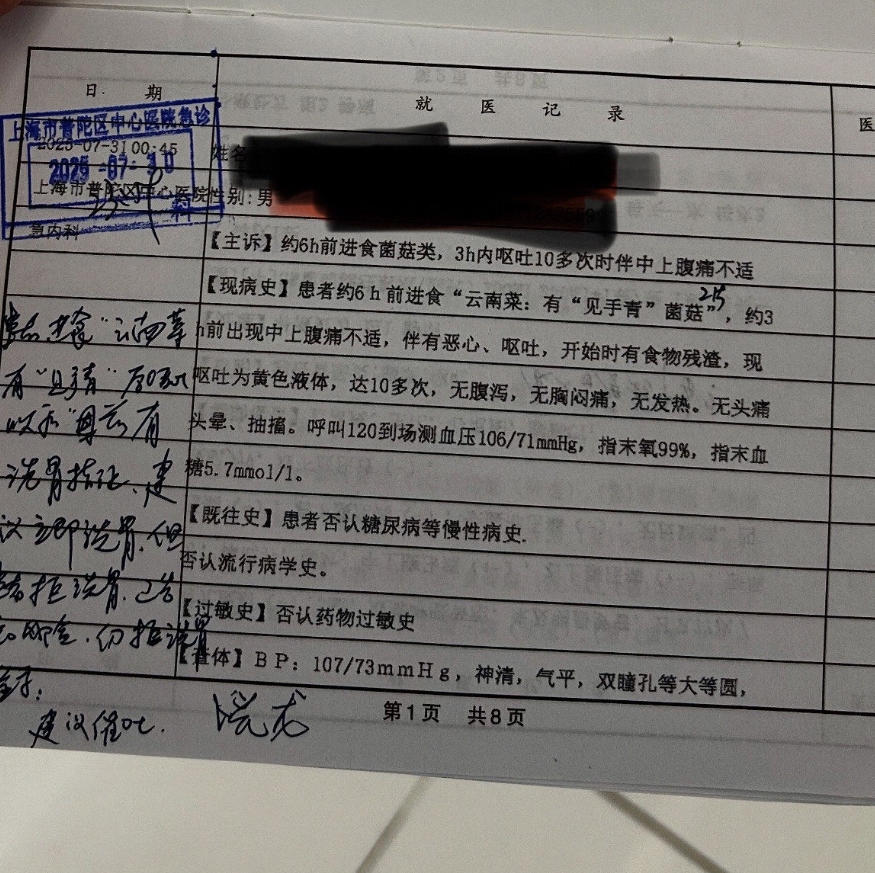 日期
就医记录
医
上海市普陀区中心医院急诊
2025-07-31 00:45
2025-07-30
上海市普陀区中心医院
科
急内科
姓名
性别:男
【主诉】约6h前进食菌菇类，3h内呕吐10多次时伴中上腹痛不适
【现病史】患者约6h前进食“云南菜：有“见手青”菌菇”，约3
h前出现中上腹痛不适，伴有恶心、呕吐，开始时有食物残渣，现
呕吐为黄色液体，达10多次，无腹泻，无胸闷痛，无发热。无头痛
头晕、抽搐。呼叫120到场测血压106/71mmHg，指末氧99%，指末血
糖5.7mmol/l。
【既往史】患者否认糖尿病等慢性病史.
否认流行病学史。
【过敏史】否认药物过敏史
【查体】BP：107/73mmHg，神清，气平，双瞳孔等大等圆，
洗胃指征、建
议立即洗胃，但
拒洗胃
仍拒洗胃
签字：
建议催吐.
第1页 共8页